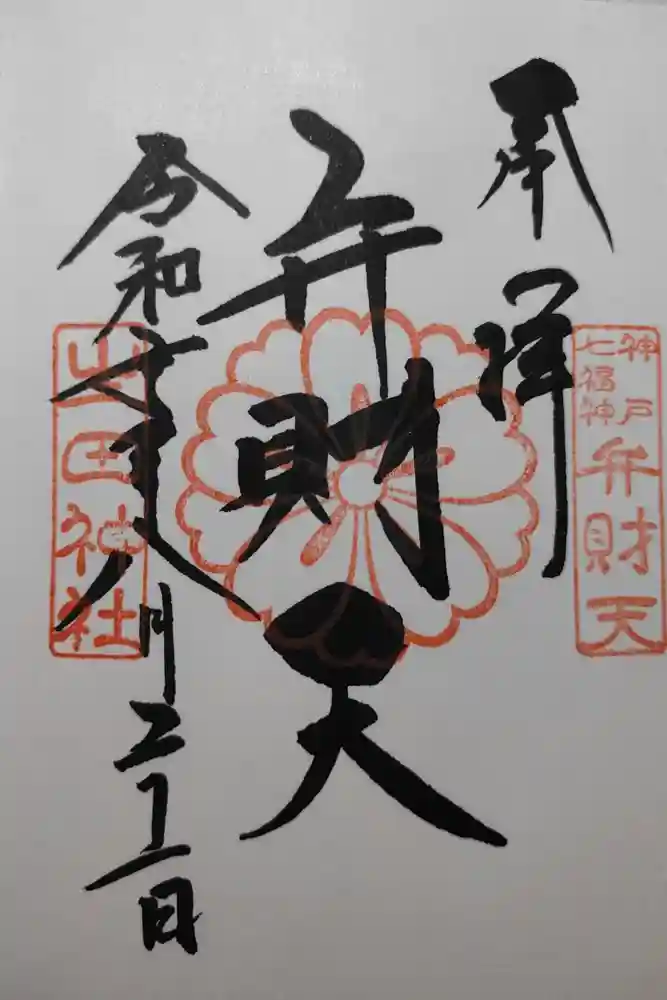 奉拝
神戸
七福神
弁財天
弁財天
令和 年八月二十一日
生田神社